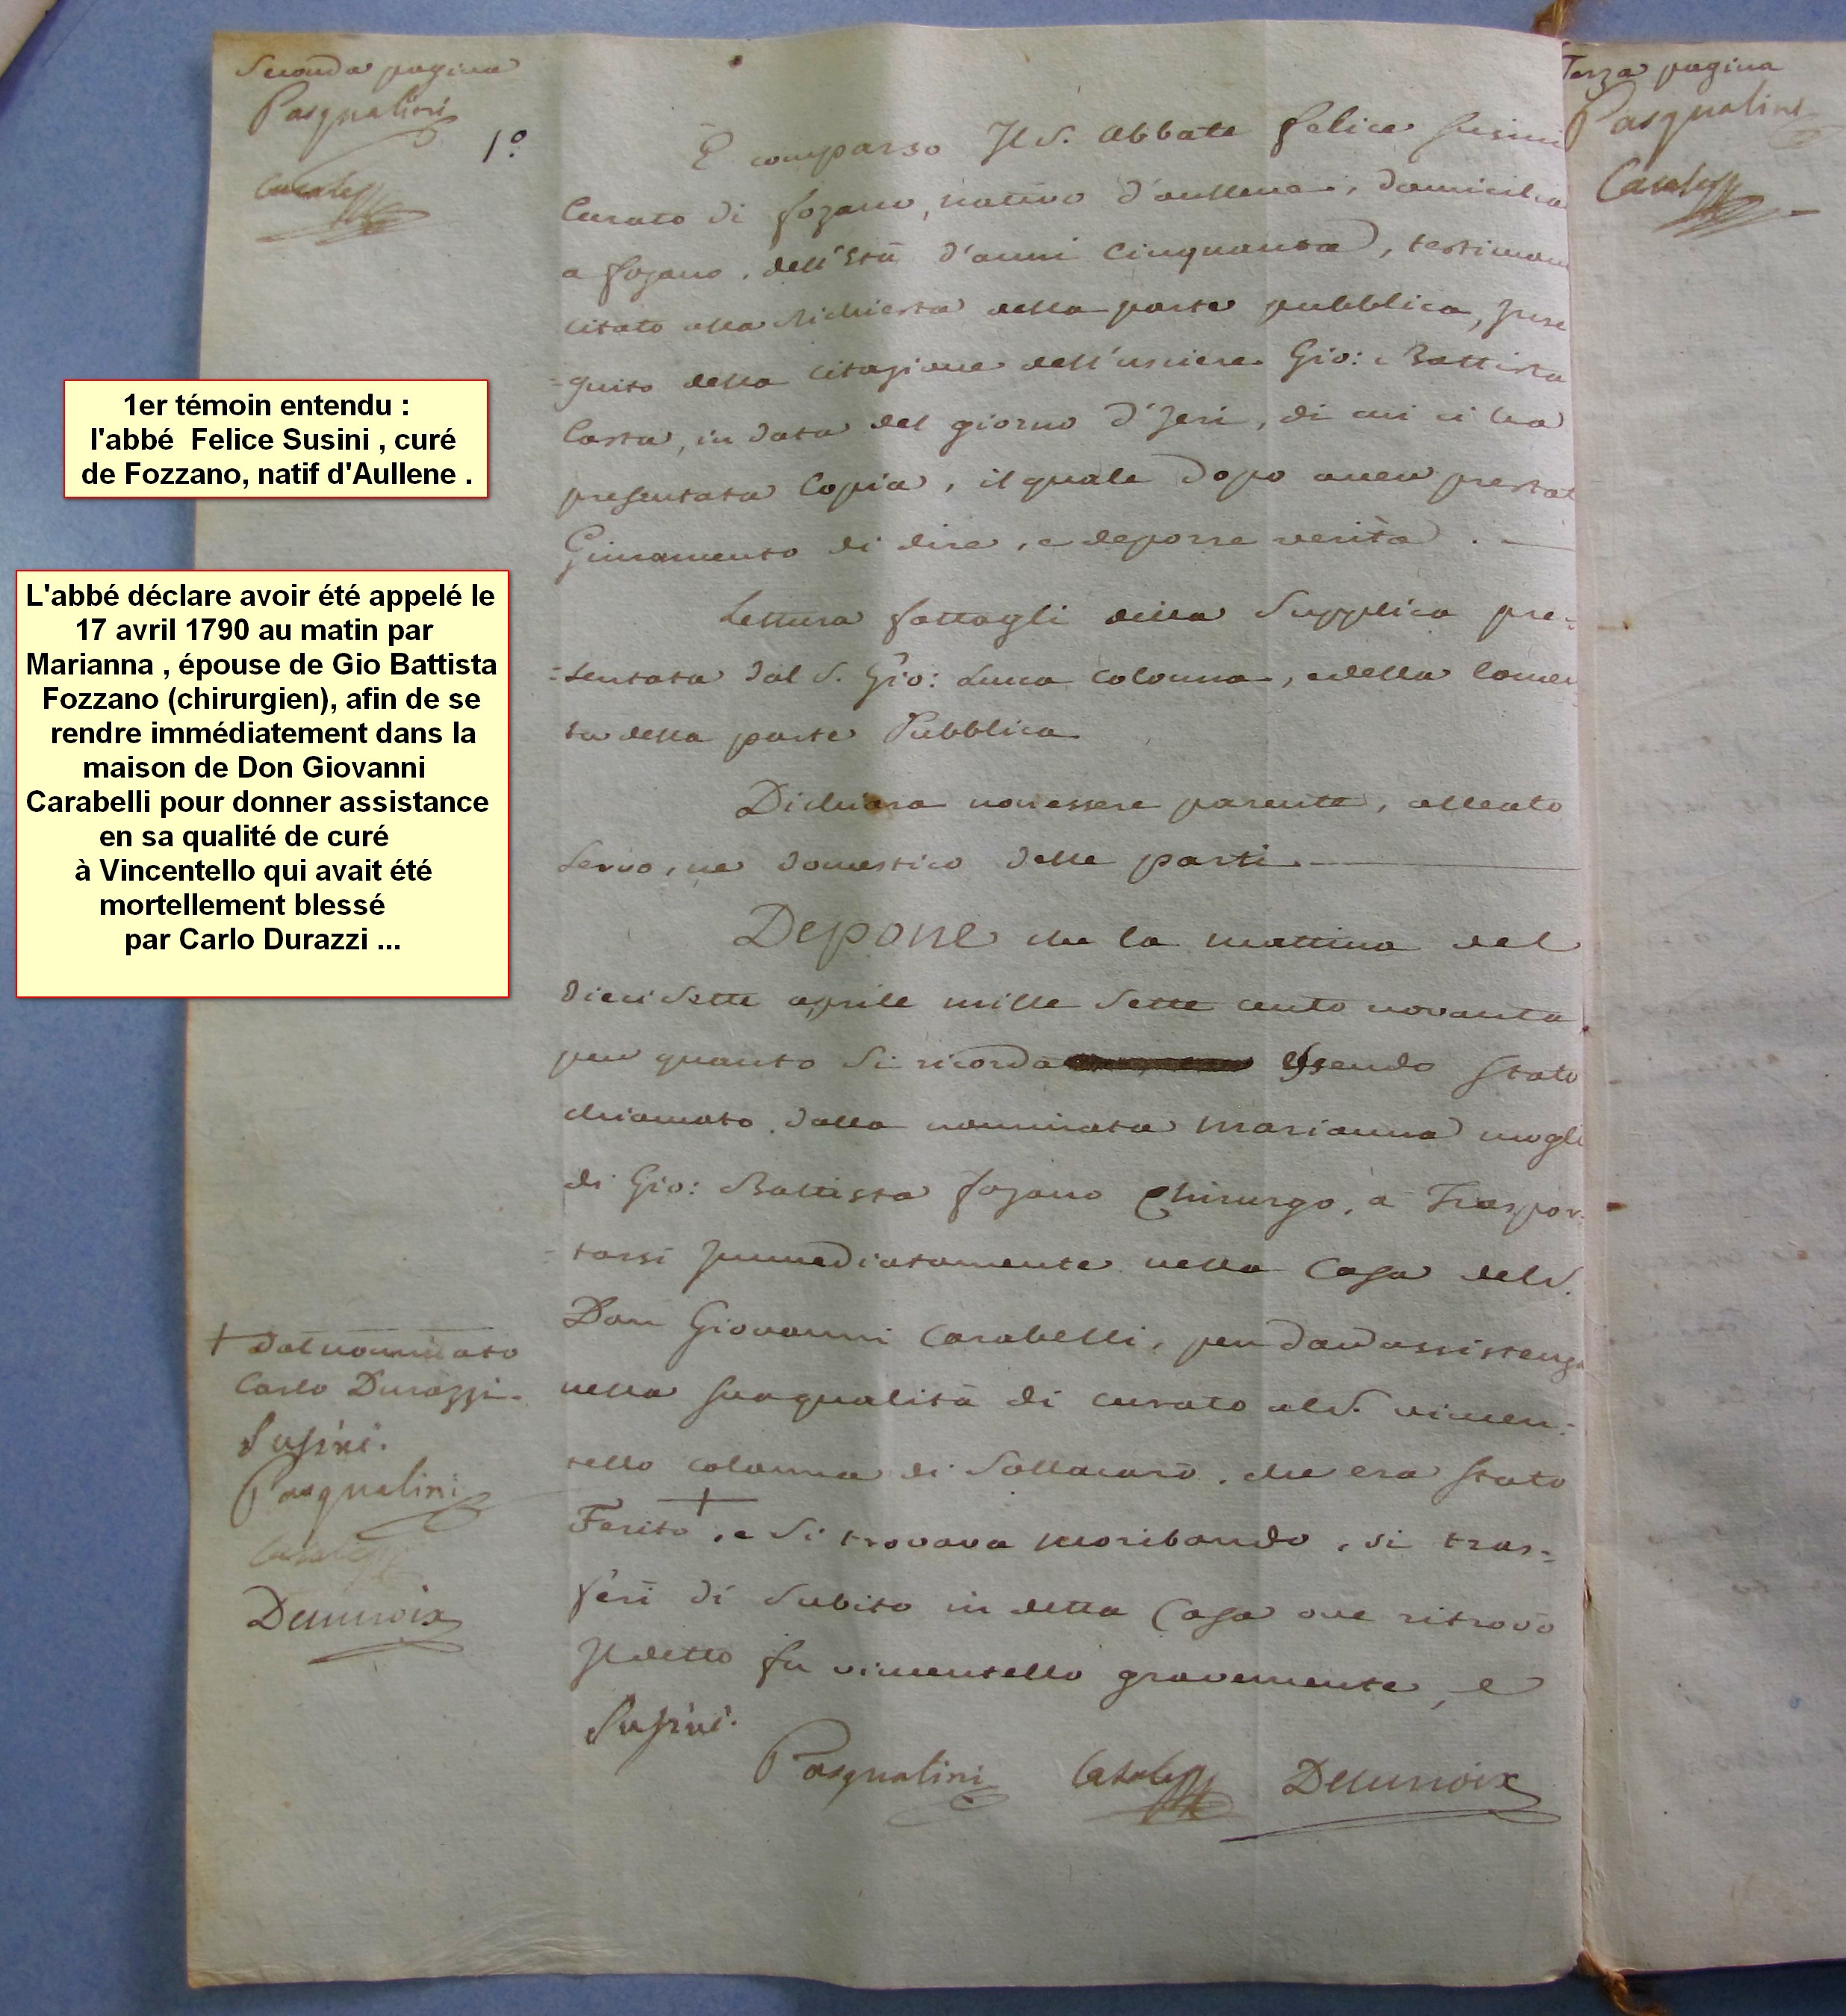 Seconda pagina
Pasqualini
1º.
È comparso Il S. Abbate felice susini
Curato di fozano, nativo d'aullene, domicilia
a fozano, dell'Età d'anni Cinquanta, testimon
citato alla Richiesta della parte pubblica, Inse
=guito della citazione dell'usciere Gio: Battista
Casta, in data del giorno d'Jeri, di cui ci ha
presentata Copia, il quale dopo aver prestat
Giuramento di dire, e deporre verità.
Lettura fattagli della Supplica pre-
=sentata dal S. Gio: Luca Colonna, edella
ta della parte Pubblica
Dichiara non essere parente, alleato
servo, ne domestico delle parti
Depone che la mattina del
diecisette aprile mille sette cento novanta
per quanto si ricorda Essendo stato
chiamato dalla nominata Marianna mogli
di Gio: Battista fozano Chirurgo, a Traspor=
tarsi Immediatamente nella Casa del S.
Don Giovanni Carabelli, per dar assistenza
nella sua qualità di curato al S. vincen=
tello colonna di Sollacarò, che era stato
Ferito +, e si trovava moribondo, si tras=
ferì di Subito in detta Casa ove ritrovò
Il detto fu vincentello gravemente, e
+ Dal nominato
Carlo Durazzi.
Susini.
Pasqualini
Susini.
Pasqualini
Terza pagina
Pasqualini
1er témoin entendu :
l'abbé Felice Susini , curé
de Fozzano, natif d'Aullene .
L'abbé déclare avoir été appelé le
17 avril 1790 au matin par
Marianna , épouse de Gio Battista
Fozzano (chirurgien), afin de se
rendre immédiatement dans la
maison de Don Giovanni
Carabelli pour donner assistance
en sa qualité de curé
à Vincentello qui avait été
mortellement blessé
par Carlo Durazzi ...